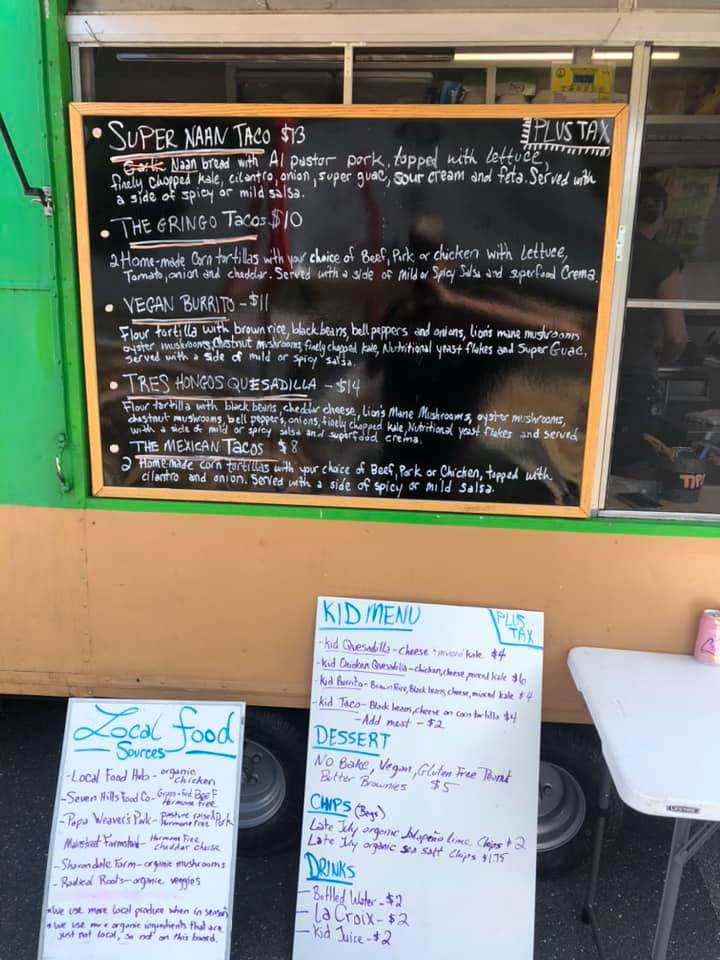 SUPER NAAN TACO $13
PLUS TAX
Naan bread with Al pastor pork, topped with lettuce,
finely chopped kale, cilantro, onion, super guac, sour cream and feta. Served with
a side of spicy or mild salsa.
THE GRINGO TACOS $10
2 Home-made Corn tortillas with your choice of Beef, Pork or chicken with Lettuce,
Tomato, onion and cheddar. Served with a side of Mild or Spicy Salsa and superfood Crema.
VEGAN BURRITO - $11
Flour tortilla with brown rice, black beans, bell peppers and onions, lion's mane mushrooms
oyster mushrooms, Chestnut mushrooms, finely chopped kale, Nutritional yeast flakes and Super Guac,
served with a side of mild or spicy salsa.
TRES HONGOS QUESADILLA - $14
Flour tortilla with black beans, cheddar cheese, Lion's Mane Mushrooms, oyster mushrooms,
chestnut mushrooms, bell peppers, onions, finely chopped kale, Nutritional yeast flakes and served
with a side of mild or spicy salsa and superfood crema.
THE MEXICAN TACOS $8
2 Home-made corn tortillas with your choice of Beef, Pork or Chicken, topped with
cilantro and onion. Served with a side of spicy or mild salsa.
KID MENU
PLUS TAX
- Kid Quesadilla - cheese + minced kale $4
- Kid Chicken Quesadilla - chicken, cheese, minced kale $6
- Kid Burrito - Brown Rice, Black beans, cheese, minced kale $4
- Kid Taco - Black beans, cheese on corn tortilla $4
- Add meat - $2
DESSERT
No Bake, Vegan, Gluten Free Peanut
Butter Brownies $5
CHIPS (Bags)
Late July organic Jalapeño lime Chips $2
Late July organic sea salt Chips $1.75
DRINKS
- Bottled Water - $2
- La Croix - $2
- Kid Juice - $2
Local Food
Sources
- Local Food Hub - organic
chicken
- Seven Hills Food Co - Grass-fed Beef
Hormone free
- Papa Weaver's Pork - pasture raised Pork
Hormone Free
Mainstreet Farmstead - Hormone Free
cheddar cheese
- Sharondale Farm - organic mushrooms
- Radical Roots - organic veggies
* We use more local produce when in season
* We use more organic ingredients that are
just not local, so not on this board.
LIFETIME
TIP